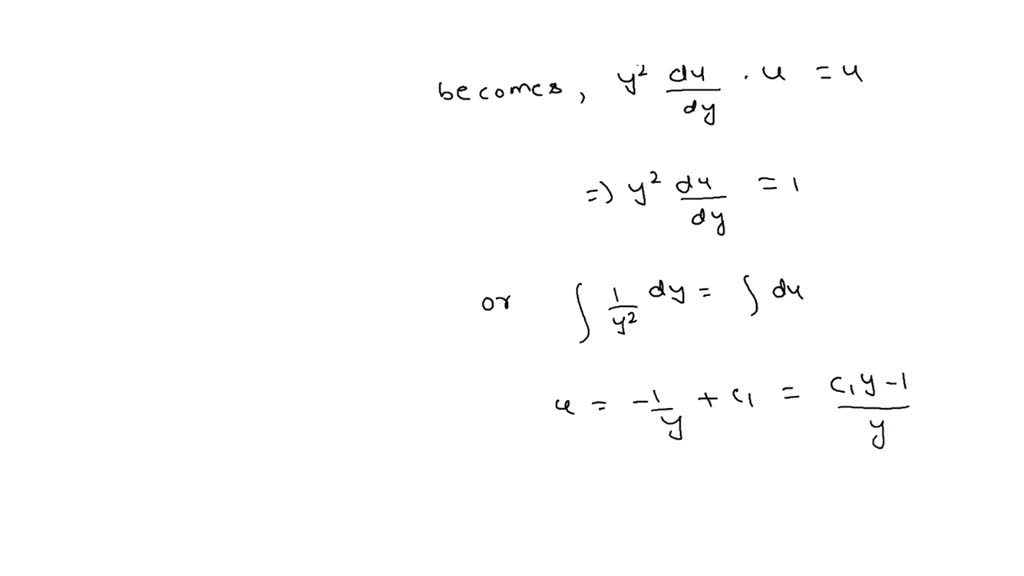 becomes, y² du/dy . u = u
=) y² du/dy = 1
or ∫ 1/y² dy = ∫ du
u = -1/y + c₁ = c₁y-1/y